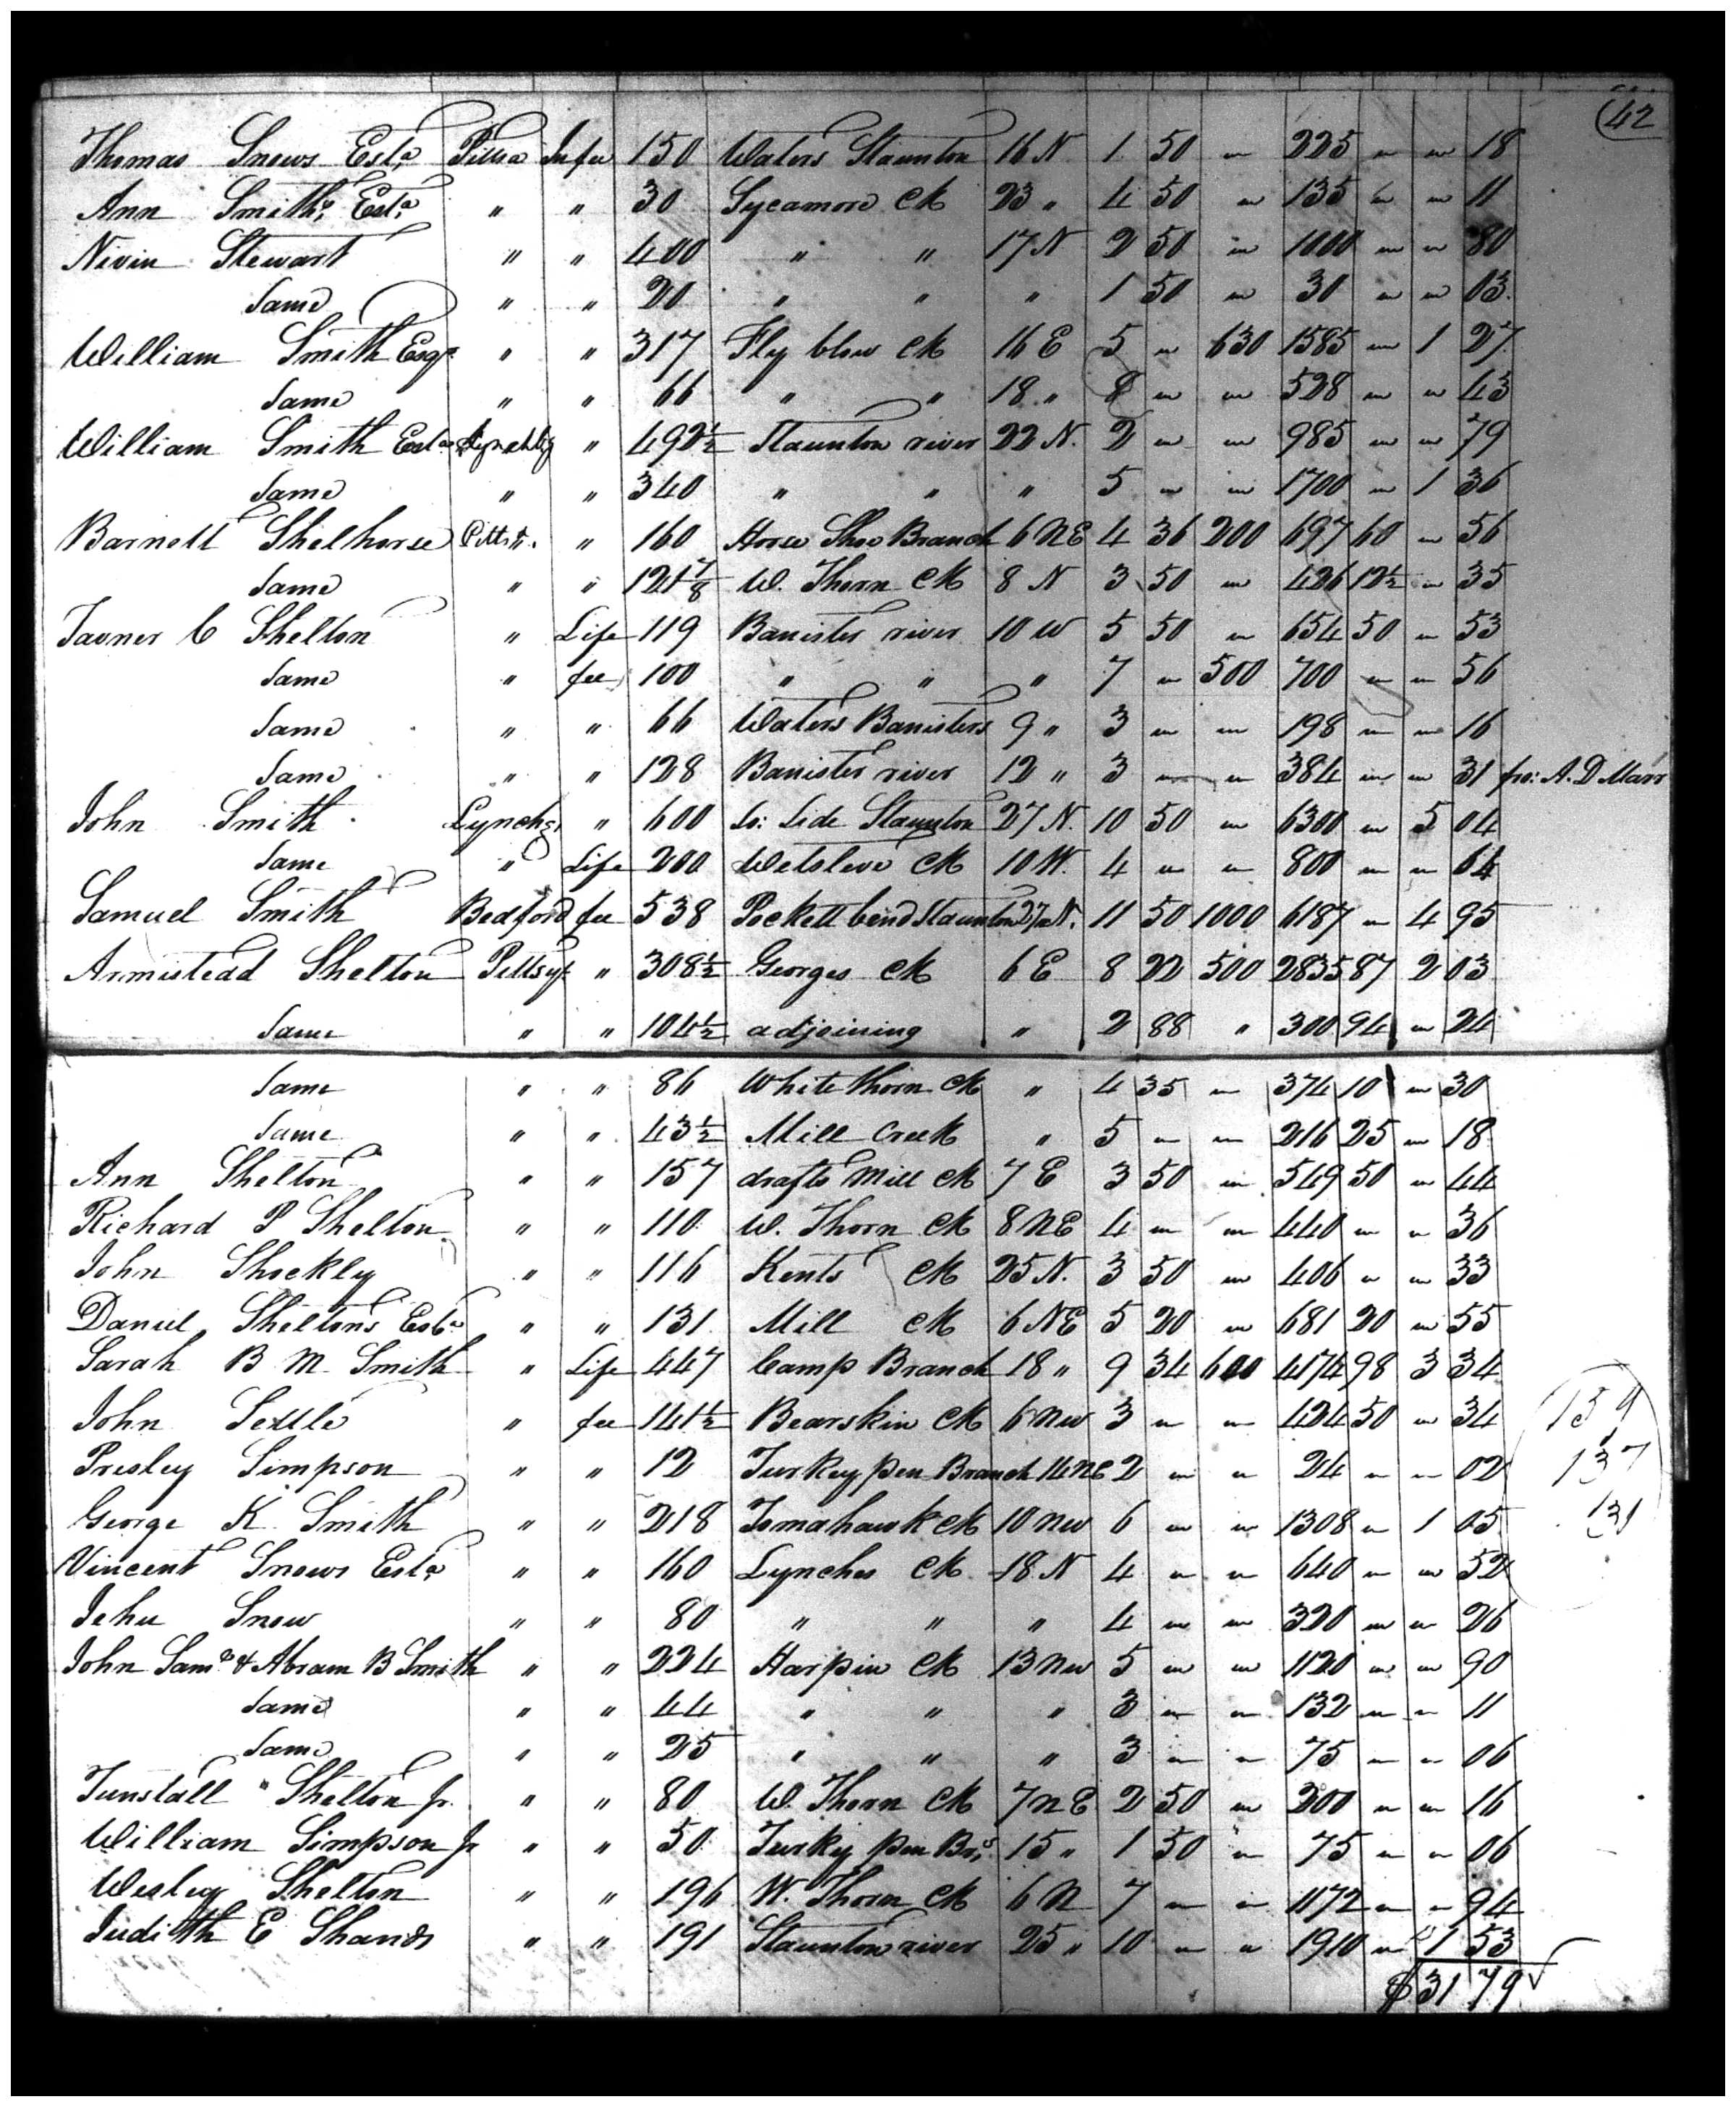 42
Thomas Snows Esta Pittsa In fee 150 Waters Staunton 16 N 1 50 " 225 " " 18
Ann Smiths Esta " " 30 Sycamore Ck 23 " 4 50 " 135 " " 11
Nivin Stewart " " 400 " " 17 N 2 50 " 1000 " " 80
Same " " 20 " " " 1 50 " 30 " " 03
William Smith Esqr " " 317 Fly blow Ck 16 E 5 " 630 1585 " 1 27
Same " " 66 " " 18 " 8 " " 528 " " 43
William Smith Esta Lynchbg " 492½ Staunton river 22 N. 2 " " 985 " " 79
Same " " 340 " " " 5 " " 1700 " 1 36
Barnett Shelhorse Pitts " 160 Horse Shoe Branch 6 NE 4 36 200 697 60 " 56
Same " " 121⅞ W. Thorn Ck 8 N 3 50 " 426 12½ " 35
Tavner C Shelton " Life 119 Banister river 10 W 5 50 " 654 50 " 53
Same " fee 100 " " " 7 " 500 700 " " 56
Same " " 66 Waters Banisters 9 " 3 " " 198 " " 16
Same " " 128 Banister river 12 " 3 " " 384 " " 31 fro: A. D Marr
John Smith Lynchg " 600 So: Side Staunton 27 N. 10 50 " 6300 " 5 04
Same " Life 200 Wetsleve Ck 10 W. 4 " " 800 " " 64
Samuel Smith Bedford fee 538 Pockett bend Staunton 27 N. 11 50 1000 6187 " 4 95
Armistead Shelton Pittsya " 308½ Georges Ck 6 E 8 22 500 2835 87 2 03
Same " " 104½ adjoining " 2 88 " 300 94 " 24
Same " " 86 White thorn Ck " 4 35 " 374 10 " 30
Same " " 43½ Mill Creek " 5 " " 216 25 " 18
Ann Shelton " " 157 drafts Mill Ck 7 E 3 50 " 549 50 " 44
Richard P Shelton " " 110 W. Thorn Ck 8 NE 4 " " 440 " " 36
John Shockly " " 116 Kents Ck 25 N. 3 50 " 406 " " 33
Daniel Sheltons Esta " " 131 Mill Ck 6 NE 5 20 " 681 20 " 55
Sarah B M Smith " Life 447 Camp Branch 18 " 9 34 600 4174 98 3 34
John Settle " fee 141½ Bearskin Ck 6 NW 3 " " 424 50 " 34
Presley Simpson " " 12 Turkey pen Branch 14 NE 2 " " 24 " " 02 137
George K Smith " " 218 Tomahawk Ck 10 NW 6 " " 1308 " 1 05 131
Vincent Snows Esta " " 160 Lynches Ck 18 N 4 " " 640 " " 52
Jehu Snow " " 80 " " " 4 " " 320 " " 26
John Saml & Abram B Smith " " 224 Harpin Ck 13 NW 5 " " 1120 " " 90
Same " " 44 " " " 3 " " 132 " " 11
Same " " 25 " " " 3 " " 75 " " 06
Tunstall Shelton Jr. " " 80 W. Thorn Ck 7 NE 2 50 " 200 " " 16
William Simpson Jr " " 50 Turky pen Brs 15 " 1 50 " 75 " " 06
Wesley Shelton " " 196 W. Thorn Ck 6 N 7 " " 1172 " " 94
Judith E Shands " " 191 Staunton river 25 " 10 " " 1910 " 1 53
$31 79